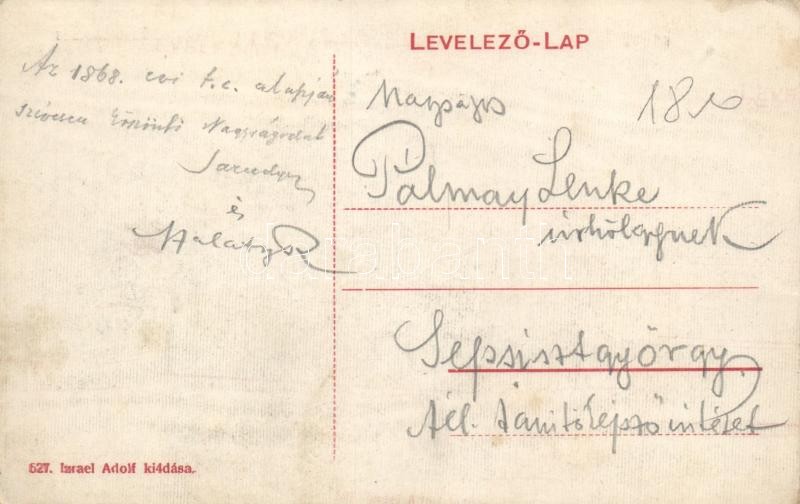 LEVELEZŐ-LAP
Az 1868. évi t.c. alapján
szívesen köszöntő Nagyságodat
és
Nagyságos
18 10
Pálmay Lenke
úrhölgynek
Sepsiszentgyörgy
Áll. tanítóképző intézet
527. Izrael Adolf ki4dása.